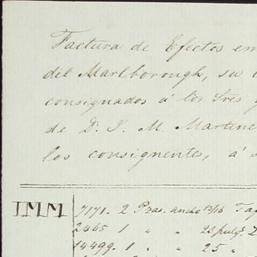 Factura de Efectos em
del Marlborough, su
consignados á los Sres
de D. J. M. Martene
los consignentes, á
IMM 7171. 2 Pzas. ancho 12/16 Tap
2465 1 " " 23 pulgs.
14499. 1 " " 25 "